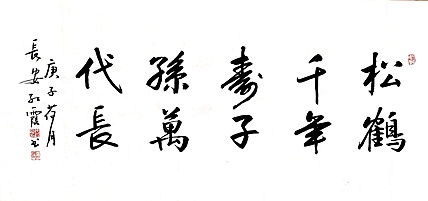 松鶴
千年
壽子
孫萬
代長
庚子荷月
長安紅霞書